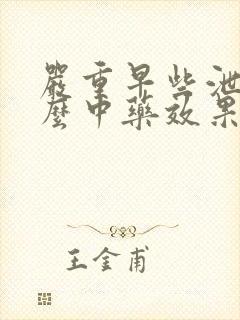 嚴重早些泄
麼中藥效果
王金甫